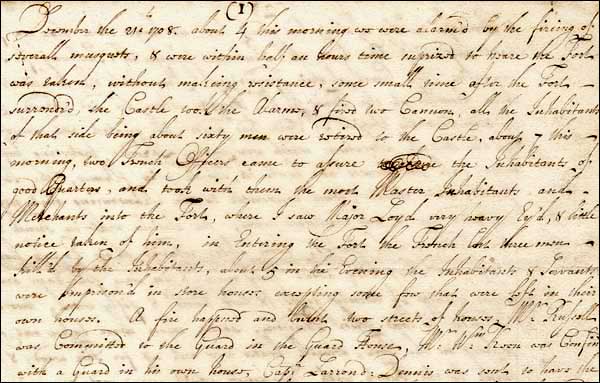 (1)
December the 21th 1708. about 4 this morning we were alarm'd by the fireing of
severall musquets, & were within half an hours time surprized to heare the Fort
was taken, without making resistance, some small time after the Fort
surrendr'd, the Castle took the Alarme, & fired two Cannon, all the Inhabitants
of that side being about sixty men were retired to the Castle, about 7 this
morning, two French Officers came to assure the Inhabitants of
good Quarters, and took with them the most Master Inhabitants and
Merchants into the Fort, where I saw Major Loyd very heavy Ey'd, & little
notice taken of him, in Entering the Fort the French lost three men
kill'd by the Inhabitants, about 5 in the Evening the Inhabitants & Servants
were Imprison'd in store houses excepting some few that were left in their
own houses. A fire happned and burnt two streets of houses, Mr
was Committed to the Guard in the Guard House, Mr Wm was Confin
with a Guard in his own house, Capt Larrond: Dennis was sent to have the